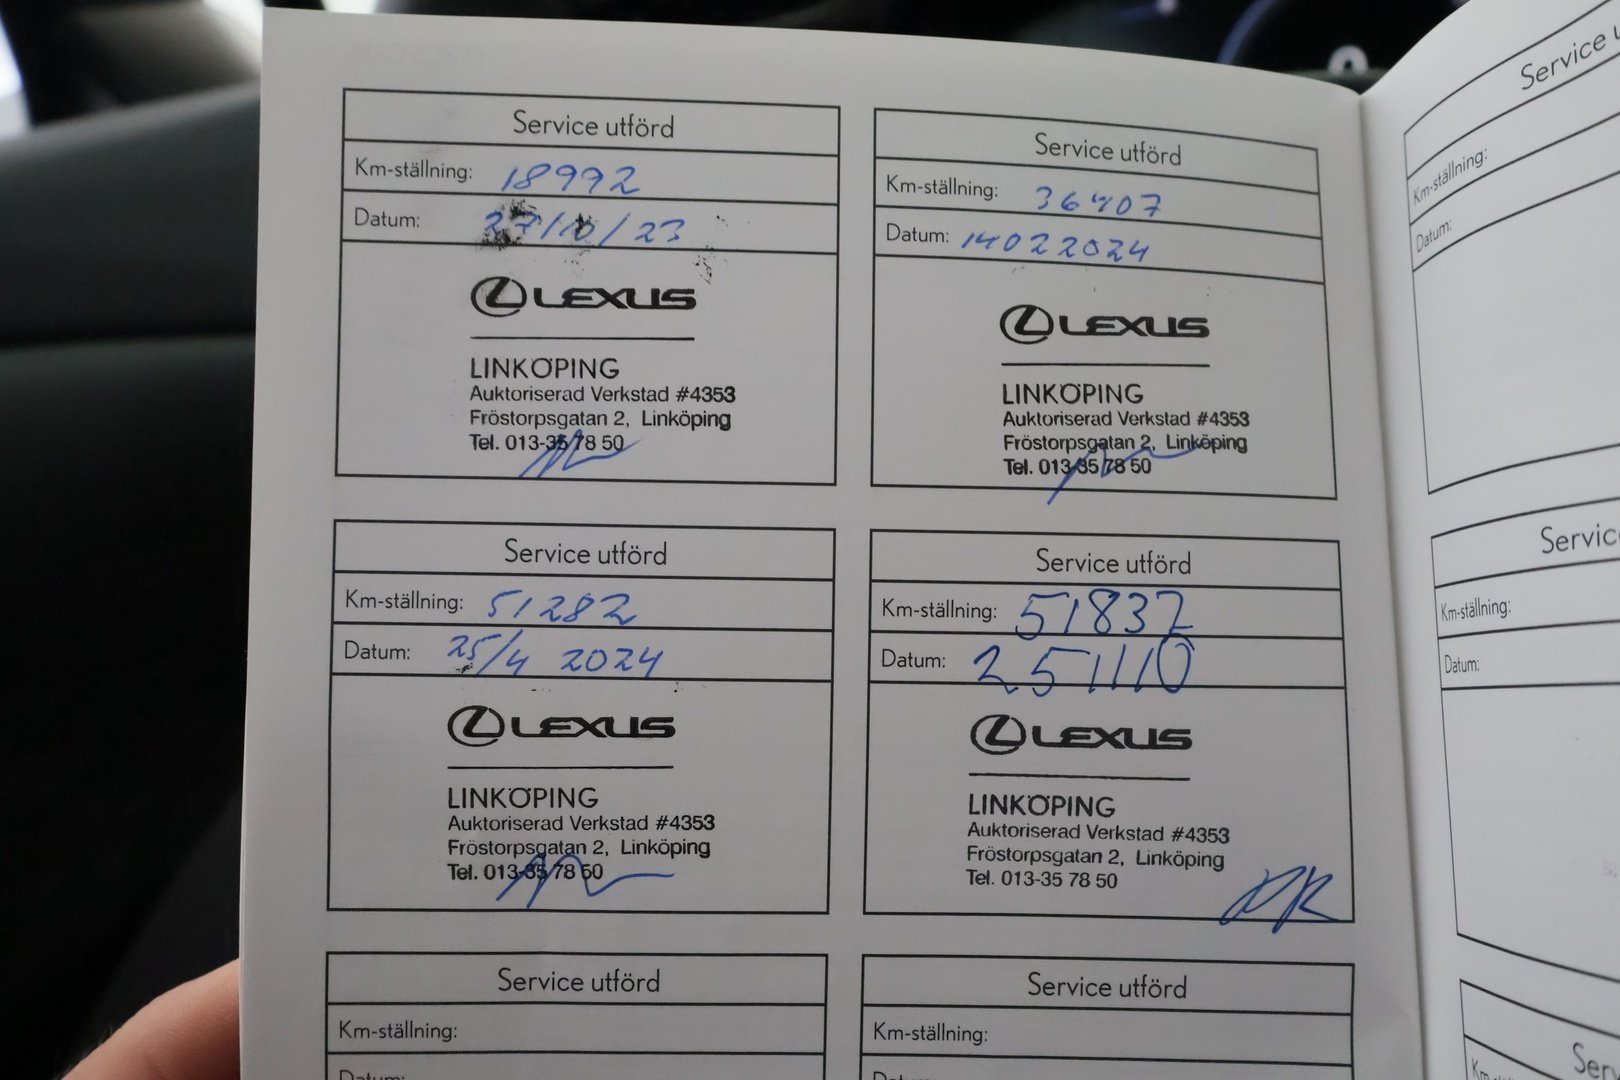 Service utförd
Km-ställning: 18992
Datum: 27/10/23
LEXUS
LINKÖPING
Auktoriserad Verkstad #4353
Fröstorpsgatan 2, Linköping
Tel. 013-35 78 50
Service utförd
Km-ställning: 36407
Datum: 14022024
LEXUS
LINKÖPING
Auktoriserad Verkstad #4353
Fröstorpsgatan 2, Linköping
Tel. 013-35 78 50
Service utförd
Km-ställning: 51282
Datum: 25/4 2024
LEXUS
LINKÖPING
Auktoriserad Verkstad #4353
Fröstorpsgatan 2, Linköping
Tel. 013-35 78 50
Service utförd
Km-ställning: 51837
Datum: 251110
LEXUS
LINKÖPING
Auktoriserad Verkstad #4353
Fröstorpsgatan 2, Linköping
Tel. 013-35 78 50
Service utförd
Km-ställning:
Datum:
Service utförd
Km-ställning:
Datum:
Service
Km-ställning:
Datum:
Km-ställning:
Datum: